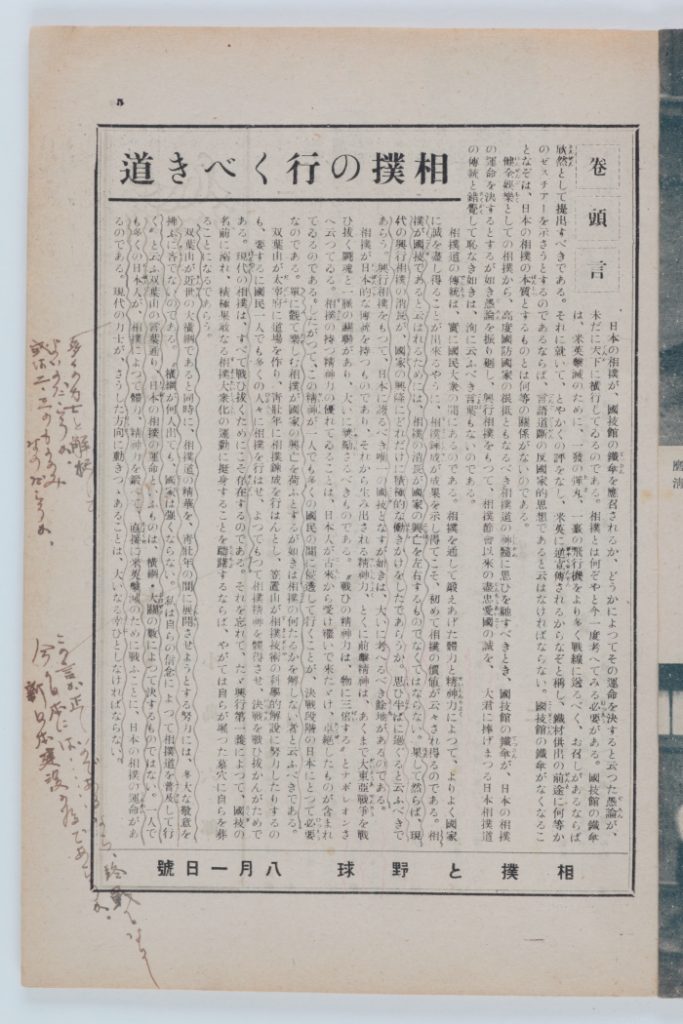 5
卷頭言
相撲の行くべき道
日本の相撲が、國技館の鐵傘を應召されるか、どうかによつてその運命を決すると云つた愚論が、
未だに天下に橫行してゐるのである。相撲とは何ぞやと今一度考へてみる必要がある。國技館の鐵傘
は、米英擊滅のために、一發の彈丸、一臺の飛行機をより多く戰線に送るべく、お召しがあるならば
欣然として提出すべきである。それに就いて、とやかくの評をなし、米英に逆宣傳されるからなぞと稱し、鐵材供出の前途に何等か
のゼスチアーを示さうとするのであるならば、言語道斷の反國家的思想であると云はなければならない。國技館の鐵傘がなくなるこ
となぞは、日本の相撲の本質とするものとは何等の關係がないのである。
健全娛樂としての相撲から、高度國防國家の根抵ともなるべき相撲道の神髓に思ひを馳すべきとき、國技館の鐵傘が、日本の相撲
の運命を決するとするが如き愚論を振り廻し、興行相撲をもつて、相撲節會以來の盡忠愛國の誠を、大君に捧げまつる日本相撲道
の傳統と錯覺して恥なき如きは、洵に云ふべき言葉もないのである。
相撲道の傳統は、實に國民大衆の間にあるのである。相撲を通して鍛えあげた體力と精神力によつて、よりよく國家
に誠を盡し得ることが出來るやうに、相撲鍊成が成果を示し得てこそ、初めて相撲の價値が云々され得るのである。相
撲が國技であると云はれるためには、相撲の消長が國家の興亡を左右するものでなくてはならない。果して然らば、現
代の興行相撲の消長が、國家の興隆にどれだけに積極的な働きかけをしたであらうか。思ひ半ばに過ぐると云ふべきで
あらう。興行相撲をもつて、日本に誇るべき唯一の國技となすが如きは、大いに考へるべき餘地があるのである。
相撲が日本的な傳統を持つものであり、それから生み出される精神力、とくに前擊精神は、あくまで大東亞戰爭を戰
ひ拔く鬪魂と一脈の關聯があり、大いに奬勵さるべきものである。〝戰ひの精神力は、物に三倍する〟とナポレオンさ
へ云つてゐる。相撲の持つ精神力の優れてゐることは、日本人が古來から受け繼いで來ただけ、卓絕したものが含まれ
てゐるのである。したがつて、この精神が一人でも多くの國民の間に浸透して行くことが、決戰段階の日本にとつて必要
なのである。單に觀て樂しむ相撲が國家の興亡を荷ふとするが如きは相撲の何たるかを解しない者と云ふべきである。
双葉山が太宰府に道場を作り、靑壯年に相撲鍊成を行はんとし、笠置山が相撲技術の科學的解說に努力したりするの
も、要するに國民一人でも多くの人々に相撲を行はせ、よつてもつて相撲精神を體得させ、決戰を戰ひ拔かんがためで
ある。現代の相撲は、すべて戰ひ拔くためにこそ存在するのである。それを忘れて、たゞ興行第一義によつて、國技の
名前に溺れ、積極果敢なる相撲大衆化の運動に挺身することを躊躇するならば、やがては自らが掘つた墓穴に自らを葬
ることになるであらう。
双葉山が近世の大橫綱であると同時に、相撲道の精華を、靑壯年の間に展開させようとする努力には、多大な敬意を
拂ふに吝でないのである。〝橫綱が何人出ても、國家は强くならない。私は自らの信念によつて相撲道を普及して行
く〟と云ふ双葉山の言葉通り、日本の相撲の運命といふものは、橫綱・大關の數によつて決するものではない。一人で
も多くの日本人が、相撲によつて體力、精神力を鍛へて、直接に米英擊滅のために戰ふことに、日本の相撲の運命があ
るのである。現代の力士が、さうした方向に動きつゝあることは、大いなる幸ひとしなければならない。
相撲と野球 八月一日號
多くの力士と解釋して
よいのだらうか。
或は二、三の力士のみ
なのだらうか。
この言が正しいならば
今の日本には……
新日本建設の爲であらうか。